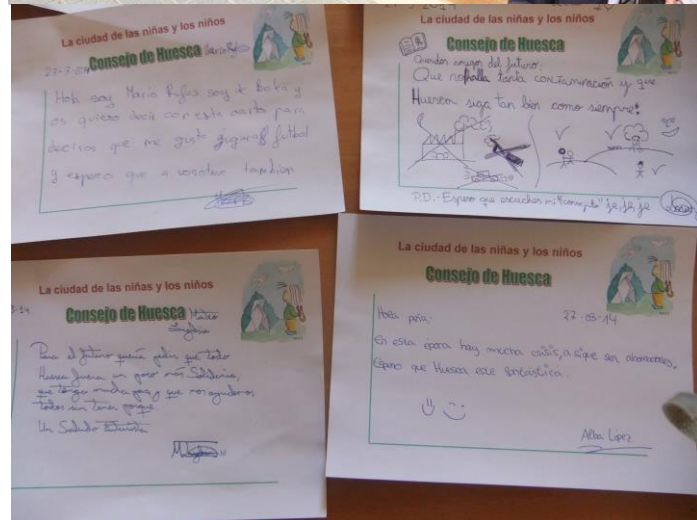 La ciudad de las niñas y los niños
Consejo de Huesca
27-3-
Hola soy Mario Rufas soy de Bota y
os quiero decir con esta carta para
deciros que me gusta jugar al futbol
y espero que a vosotros tambien
La ciudad de las niñas y los niños
Consejo de Huesca
Queridos amigos del futuro:
Que no halla tanta contaminación y que
Huesca siga tan bien como siempre!
P.D.- Espero que escuchen mi "consejito" je, je, je
La ciudad de las niñas y los niños
Consejo de Huesca Mateo
Para el futuro quería pedir que toda
Huesca fuera un poco más Solidaria,
que tenga mucha paz y que nos ayudemos
todos sin tener porque
Un Saludo
La ciudad de las niñas y los niños
Consejo de Huesca
Hola peña: 27-03-14
En esta época hay mucha crisis, a sique sed ahorradores.
Espero que Huesca este fantastica.
Alba López